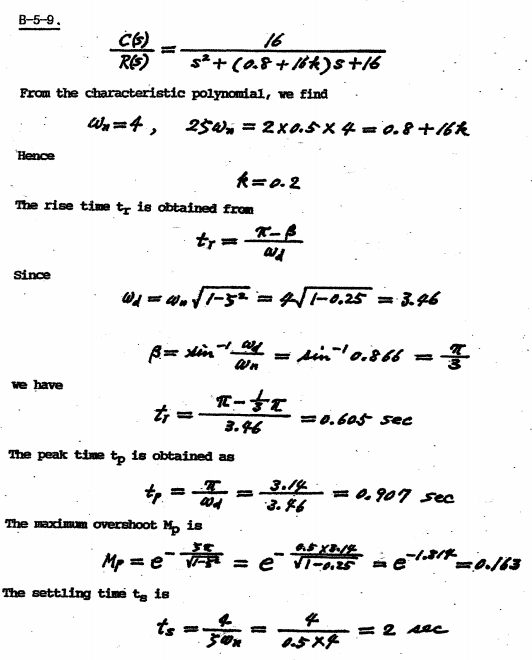 B-5-9.
C(s)/R(s) = 16/(s² + (0.8 + 16k)s + 16)
From the characteristic polynomial, we find
ωn = 4 , 2ζωn = 2 × 0.5 × 4 = 0.8 + 16k
Hence
k = 0.2
The rise time tr is obtained from
tr = (π - β)/ωd
Since
ωd = ωn √(1-ζ²) = 4√(1-0.25) = 3.46
β = sin⁻¹ ωd/ωn = sin⁻¹ 0.866 = π/3
we have
tr = (π - ⅓π)/3.46 = 0.605 sec
The peak time tp is obtained as
tp = π/ωd = 3.14/3.46 = 0.907 sec
The maximum overshoot Mp is
Mp = e^(-ζπ/√(1-ζ²)) = e^(-0.5×3.14/√(1-0.25)) = e^(-1.814) = 0.163
The settling time ts is
ts = 4/(ζωn) = 4/(0.5×4) = 2 sec